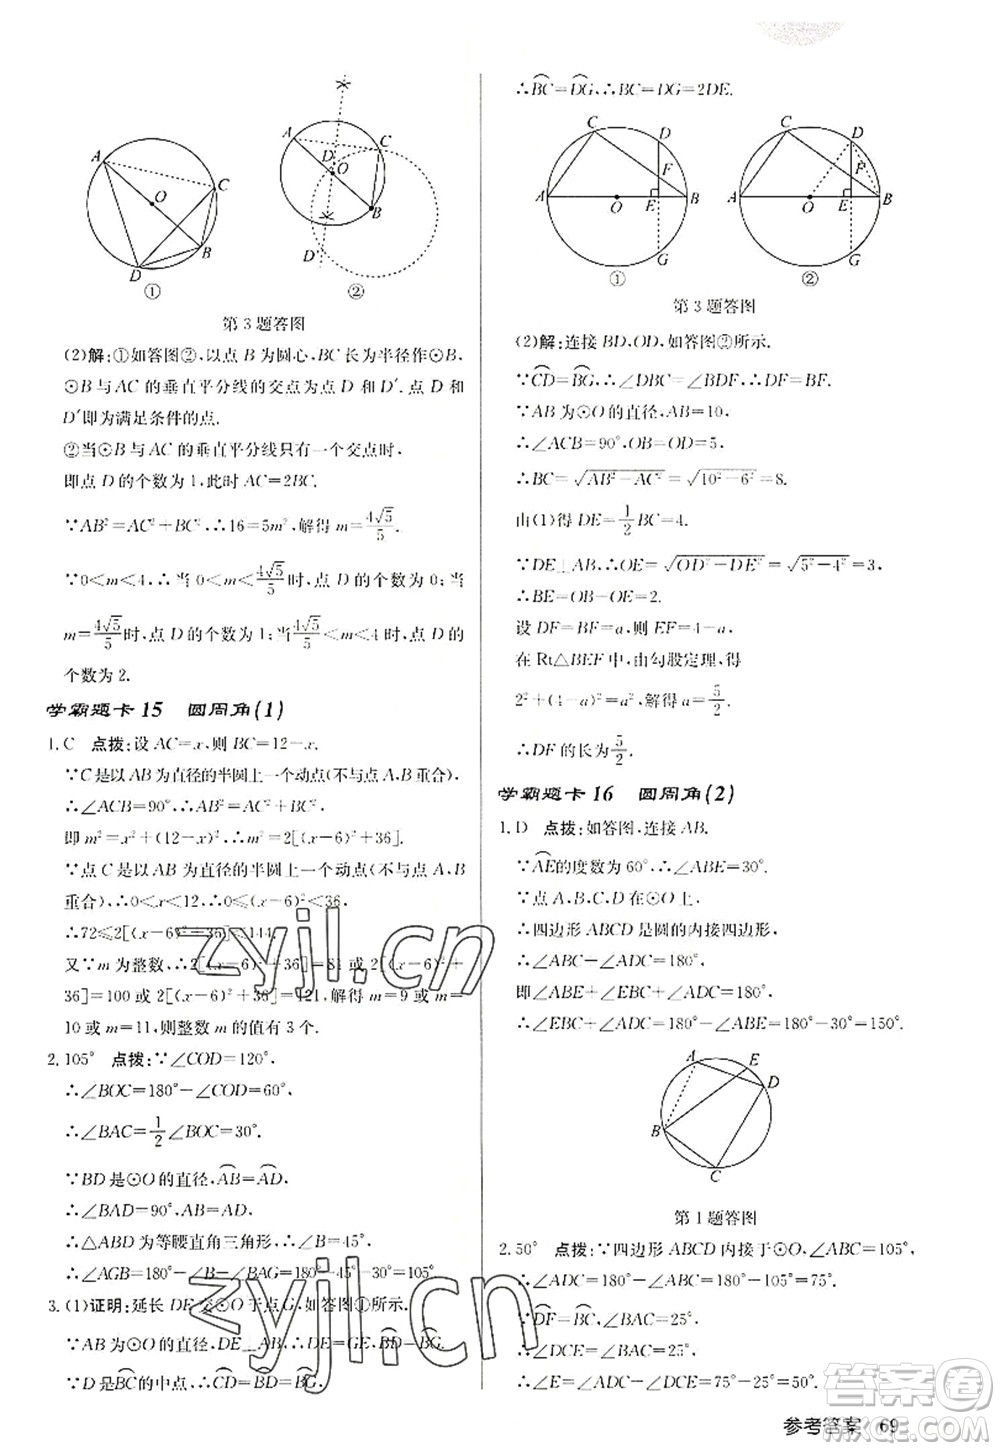 A
C
O
B
D
①
A
C
D
O
B
D′
②
第3题答图
(2)解:①如答图②,以点B为圆心,BC长为半径作⊙B,
⊙B与AC的垂直平分线的交点为点D和D′.点D和
D′即为满足条件的点.
②当⊙B与AC的垂直平分线只有一个交点时,
即点D的个数为1,此时AC=2BC.
∵AB²=AC²+BC²,∴16=5m²,解得m=4√5/5.
∵0<m<4,∴当0<m<4√5/5时,点D的个数为0;当
m=4√5/5时,点D的个数为1;当4√5/5<m<4时,点D的
个数为2.
学霸题卡15 圆周角(1)
1.C 点拨:设AC=x,则BC=12-x.
∵C是以AB为直径的半圆上一个动点(不与点A、B重合),
∴∠ACB=90°,∴AB²=AC²+BC²,
即m²=x²+(12-x)²,∴m²=2[(x-6)²+36].
∵点C是以AB为直径的半圆上一个动点(不与点A、
B重合),∴0<x<12,∴0≤(x-6)²<36,
∴72≤2[(x-6)²+36]<144.
又∵m为整数,∴2[(x-6)²+36]=81或2[(x-6)²+
36]=100或2[(x-6)²+36]=121,解得m=9或m=
10或m=11,则整数m的值有3个.
2.105° 点拨:∵∠COD=120°,
∴∠BOC=180°-∠COD=60°,
∴∠BAC=1/2∠BOC=30°.
∵BD是⊙O的直径,A͡B=A͡D,
∴∠BAD=90°,AB=AD,
∴△ABD为等腰直角三角形,∴∠B=45°,
∴∠AGB=180°-∠B-∠BAG=105°.
3.(1)证明:延长DE交⊙O于点G,如答图①所示.
∵AB为⊙O的直径,DE⊥AB,∴DE=GE,B͡D=B͡G.
∵D是B͡C的中点,∴C͡D=B͡D=B͡G,
∴B͡C=D͡G,∴BC=DG=2DE.
C
D
F
A
O
E
B
G
①
C
D
F
A
O
E
B
G
②
第3题答图
(2)解:连接BD、OD,如答图②所示.
∵C͡D=B͡G,∴∠DBC=∠BDF,∴DF=BF.
∵AB为⊙O的直径,AB=10,
∴∠ACB=90°,OB=OD=5,
∴BC=√(AB²-AC²)=√(10²-6²)=8.
由(1)得DE=1/2BC=4.
∵DE⊥AB,∴OE=√(OD²-DE²)=√(5²-4²)=3,
∴BE=OB-OE=2.
设DF=BF=a,则EF=4-a.
在Rt△BEF中,由勾股定理,得
2²+(4-a)²=a²,解得a=5/2.
∴DF的长为5/2.
学霸题卡16 圆周角(2)
1.D 点拨:如答图,连接AB.
∵A͡E的度数为60°,∴∠ABE=30°.
∵点A、B、C、D在⊙O上,
∴四边形ABCD是圆的内接四边形,
∴∠ABC+∠ADC=180°,
即∠ABE+∠EBC+∠ADC=180°,
∴∠EBC+∠ADC=180°-∠ABE=180°-30°=150°.
A
E
D
B
C
第1题答图
2.50° 点拨:∵四边形ABCD内接于⊙O,∠ABC=105°,
∴∠ADC=180°-∠ABC=180°-105°=75°.
∵D͡F=B͡C,∠BAC=25°,
∴∠DCE=∠BAC=25°,
∴∠E=∠ADC-∠DCE=75°-25°=50°.
zyjl.cn
zyjl.cn
答案圈
参考答案 69